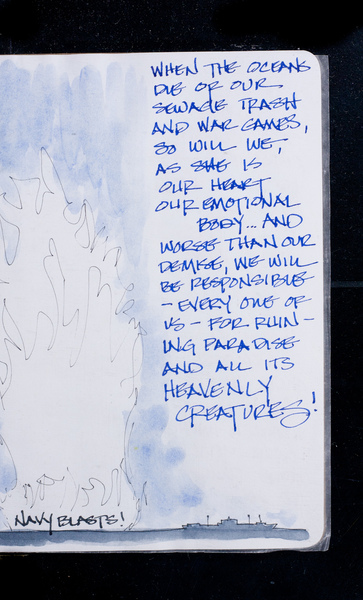 WHEN THE OCEANS
DIE OF OUR
SEWAGE TRASH
AND WAR GAMES,
SO WILL WE,
AS SHE IS
OUR HEART
OUR EMOTIONAL
BODY... AND
WORSE THAN OUR
DEMISE, WE WILL
BE RESPONSIBLE
- EVERY ONE OF
US - FOR RUIN-
ING PARADISE
AND ALL ITS
HEAVENLY
CREATURES!
NAVY BLASTS!